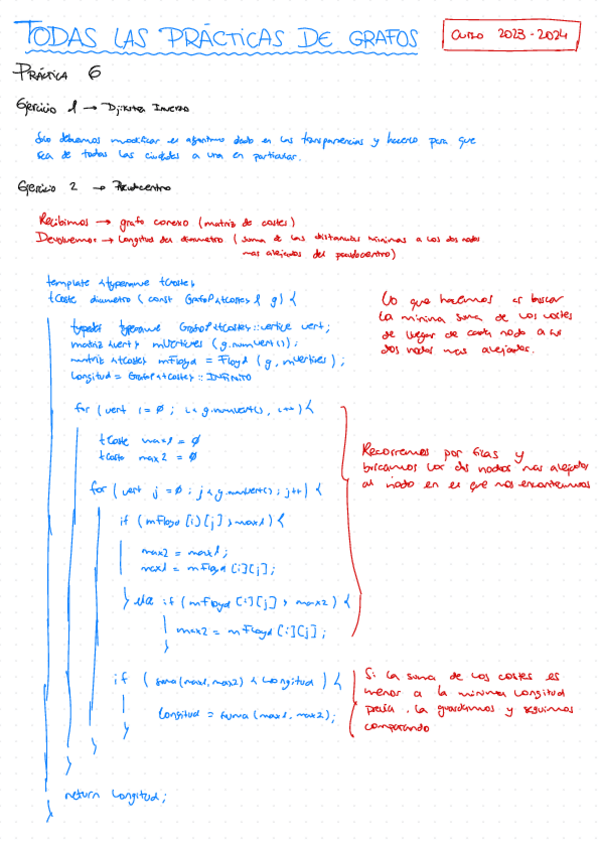 TODAS LAS PRÁCTICAS DE GRAFOS
Curso 2023-2024
PRÁCTICA 6
Ejercicio 1 → Dijkstra Inverso
Sólo debemos modificar el algoritmo dado en las transparencias y hacerlo para que
sea de todas las ciudades a una en particular.
Ejercicio 2 → Pseudocentro
Recibimos → grafo conexo (matriz de costes)
Devolvemos → Longitud del diametro (suma de las distancias minimas a los dos nodos
mas alejados del pseudocentro)
template <typename tCoste>
tCoste diametro (const GrafoP<tCoste> & g) {
typedef typename GrafoP<tCoste>::vertice vert;
matriz <vert> mVertices (g.numVert());
matriz <tCoste> mFloyd = Floyd (g, mVertices);
Longitud = GrafoP<tCoste> :: INFINITO
for (vert i = 0 ; i < g.numVert(), i++) {
tCoste max1 = 0
tCoste max2 = 0
for (vert j = 0 ; j < g.numVert() ; j++) {
if (mFloyd [i][j] > max1) {
max2 = max1;
max1 = mFloyd [i][j];
} else if (mFloyd [i][j] > max2) {
max2 = mFloyd [i][j];
}
if (suma(max1, max2) < Longitud) {
Longitud = suma (max1, max2);
}
}
}
return Longitud;
}
Lo que hacemos es buscar
la minima suma de los costes
de llegar de cada nodo a sus
dos nodos mas alejados.
Recorremos por filas y
buscamos los dos nodos mas alejados
al nodo en el que nos encontremos
Si la suma de los costes es
menor a la minima longitud
previa, la guardamos y seguimos
comparando